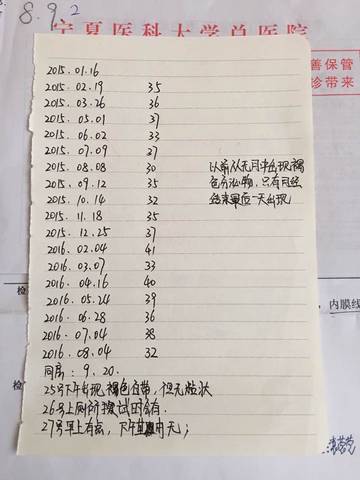 8.9.2
宁夏医科大学总医院
善保管
诊带来
2015.01.16
2015.02.19 35
2015.03.26 36
2015.05.01 37
2015.06.02 33
2015.07.09 37
2015.08.08 30
2015.09.12 35
2015.10.14 32
2015.11.18 35
2015.12.25 37
2016.02.04 41
2016.03.07 33
2016.04.16 40
2016.05.24 39
2016.06.28 36
2016.07.04 38
2016.08.04 32
以前从无月中出现褐
色分泌物,只有月经
结束最后一天出现
同房: 9.20.
25号下午出现褐色白带,但无粒状
26号上厕所擦试时会有.
27号早上有点,下午中无;
内膜线
检